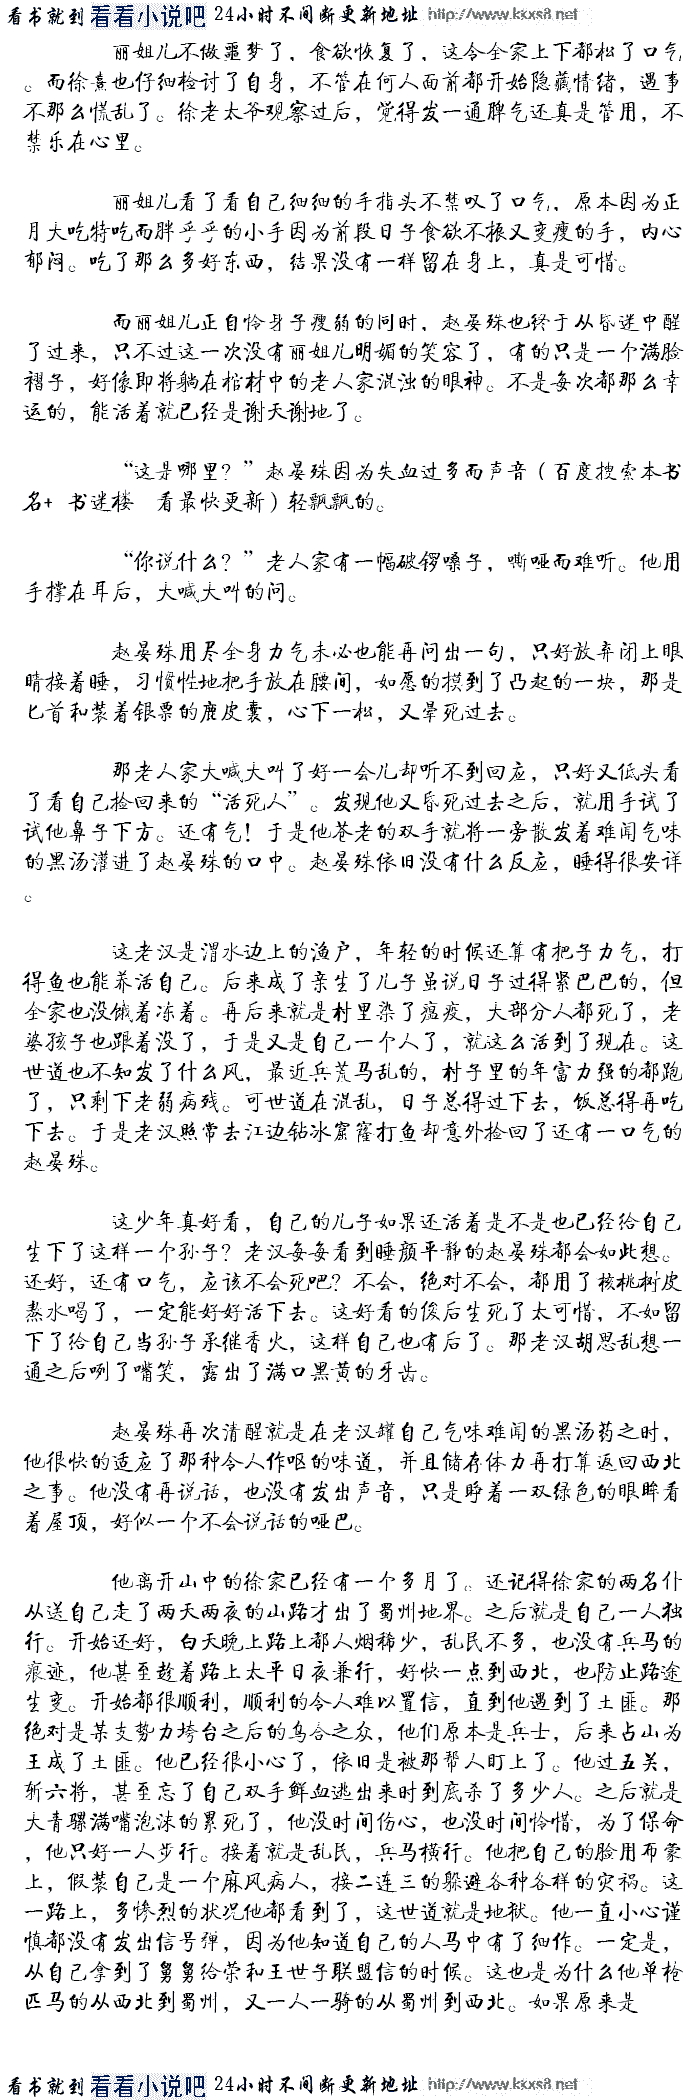 看书就到 看看小说吧 24小时不间断更新地址 http://www.kxxs8.net
丽姐儿不做噩梦了，食欲恢复了，这令全家上下都松了口气
。而徐熹也仔细检讨了自身，不管在何人面前都开始隐藏情绪，遇事
不那么慌乱了。徐老太爷观察过后，觉得发一通脾气还真是管用，不
禁乐在心里。
丽姐儿看了看自己细细的手指头不禁叹了口气，原本因为正
月大吃特吃而胖乎乎的小手因为前段日子食欲不振又变瘦的手，内心
郁闷。吃了那么多好东西，结果没有一样留在身上，真是可惜。
而丽姐儿正自怜身子瘦弱的同时，赵晏殊也终于从昏迷中醒
了过来，只不过这一次没有丽姐儿明媚的笑容了，有的只是一个满脸
褶子，好像即将躺在棺材中的老人家混浊的眼神。不是每次都那么幸
运的，能活着就已经是谢天谢地了。
“这是哪里？”赵晏殊因为失血过多而声音（百度搜索本书
名+ 书迷楼 看最快更新）轻飘飘的。
“你说什么？”老人家有一幅破锣嗓子，嘶哑而难听。他用
手撑在耳后，大喊大叫的问。
赵晏殊用尽全身力气未必也能再问出一句，只好放弃闭上眼
睛接着睡，习惯性地把手放在腰间，如愿的摸到了凸起的一块，那是
匕首和装着银票的鹿皮囊，心下一松，又晕死过去。
那老人家大喊大叫了好一会儿却听不到回应，只好又低头看
了看自己捡回来的“活死人”。发现他又昏死过去之后，就用手试了
试他鼻子下方。还有气！于是他苍老的双手就将一旁散发着难闻气味
的黑汤灌进了赵晏殊的口中。赵晏殊依旧没有什么反应，睡得很安详
。
这老汉是渭水边上的渔户，年轻的时候还算有把子力气，打
得鱼也能养活自己。后来成了亲生了儿子虽说日子过得紧巴巴的，但
全家也没饿着冻着。再后来就是村里染了瘟疫，大部分人都死了，老
婆孩子也跟着没了，于是又是自己一个人了，就这么活到了现在。这
世道也不知发了什么风，最近兵荒马乱的，村子里的年富力强的都跑
了，只剩下老弱病残。可世道在混乱，日子总得过下去，饭总得再吃
下去。于是老汉照常去江边钻冰窟窿打鱼却意外捡回了还有一口气的
赵晏殊。
这少年真好看，自己的儿子如果还活着是不是也已经给自己
生下了这样一个孙子？老汉每每看到睡颜平静的赵晏殊都会如此想。
还好，还有口气，应该不会死吧？不会，绝对不会，都用了核桃树皮
熬水喝了，一定能好好活下去。这好看的俊后生死了太可惜，不如留
下了给自己当孙子承继香火，这样自己也有后了。那老汉胡思乱想一
通之后咧了嘴笑，露出了满口黑黄的牙齿。
赵晏殊再次清醒就是在老汉罐自己气味难闻的黑汤药之时，
他很快的适应了那种令人作呕的味道，并且储存体力再打算返回西北
之事。他没有再说话，也没有发出声音，只是睁着一双绿色的眼眸看
着屋顶，好似一个不会说话的哑巴。
他离开山中的徐家已经有一个多月了。还记得徐家的两名仆
从送自己走了两天两夜的山路才出了蜀州地界。之后就是自己一人独
行。开始还好，白天晚上路上都人烟稀少，乱民不多，也没有兵马的
痕迹，他甚至趁着路上太平日夜兼行，好快一点到西北，也防止路途
生变。开始都很顺利，顺利的令人难以置信，直到他遇到了土匪。那
绝对是某支势力垮台之后的乌合之众，他们原本是兵士，后来占山为
王成了土匪。他已经很小心了，依旧是被那帮人盯上了。他过五关，
斩六将，甚至忘了自己双手鲜血逃出来时到底杀了多少人。之后就是
大青骡满嘴泡沫的累死了，他没时间伤心，也没时间怜惜，为了保命
，他只好一人步行。接着就是乱民，兵马横行。他把自己的脸用布蒙
上，假装自己是一个麻风病人，接二连三的躲避各种各样的灾祸。这
一路上，多惨烈的状况他都看到了，这世道就是地狱。他一直小心谨
慎都没有发出信号弹，因为他知道自己的人马中有了细作。一定是，
从自己拿到了舅舅给荣和王世子联盟信的时候。这也是为什么他单枪
匹马的从西北到蜀州，又一人一骑的从蜀州到西北。如果原来是
看书就到 看看小说吧 24小时不间断更新地址 http://www.kxxs8.net